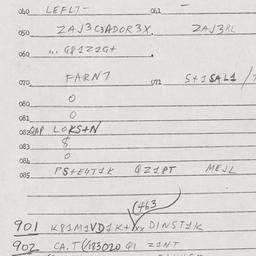 040 LEFL7- 041 -
050 ZAJ3C3ADOR3X. ZAJ3RL
060 ... G81Z1G+
070 FARN7 071 S+1SAL1/
080 0
081 0
082 QAP LOKS+N
083 8
084 0
085 PS+E4T1K QZ1PT MEJL
(463
901 K81M1VD1K+/xx DINST1K
902 CA.T(/183020 Q1 Z1NT